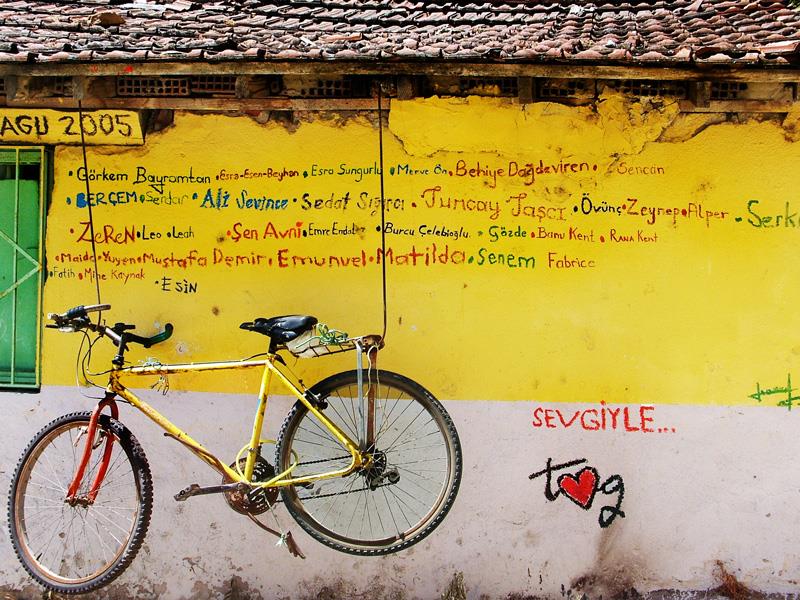 AGU 2005
Görkem Bayramtan • Esra-Esen-Beyhan • Esra Sungurlu • Merve Ön • Behiye Dağdeviren • Sencan
• BERÇEM • Serdar • Ali Sevince • Sedat • Tuncay Taşcı • Övünç • Zeynep • Alper •
• ZeReN • Leo • Leah • Şen Avni • Emre • Burcu Çelebioğlu • Gözde • Banu Kent • RANA Kent
• Maide • Yuyen • Mustafa Demir • Emunuel • Matilda • Senem Fabrice
• Fatih • Mine Kaynak
• ESİN
SEVGİYLE...
tog